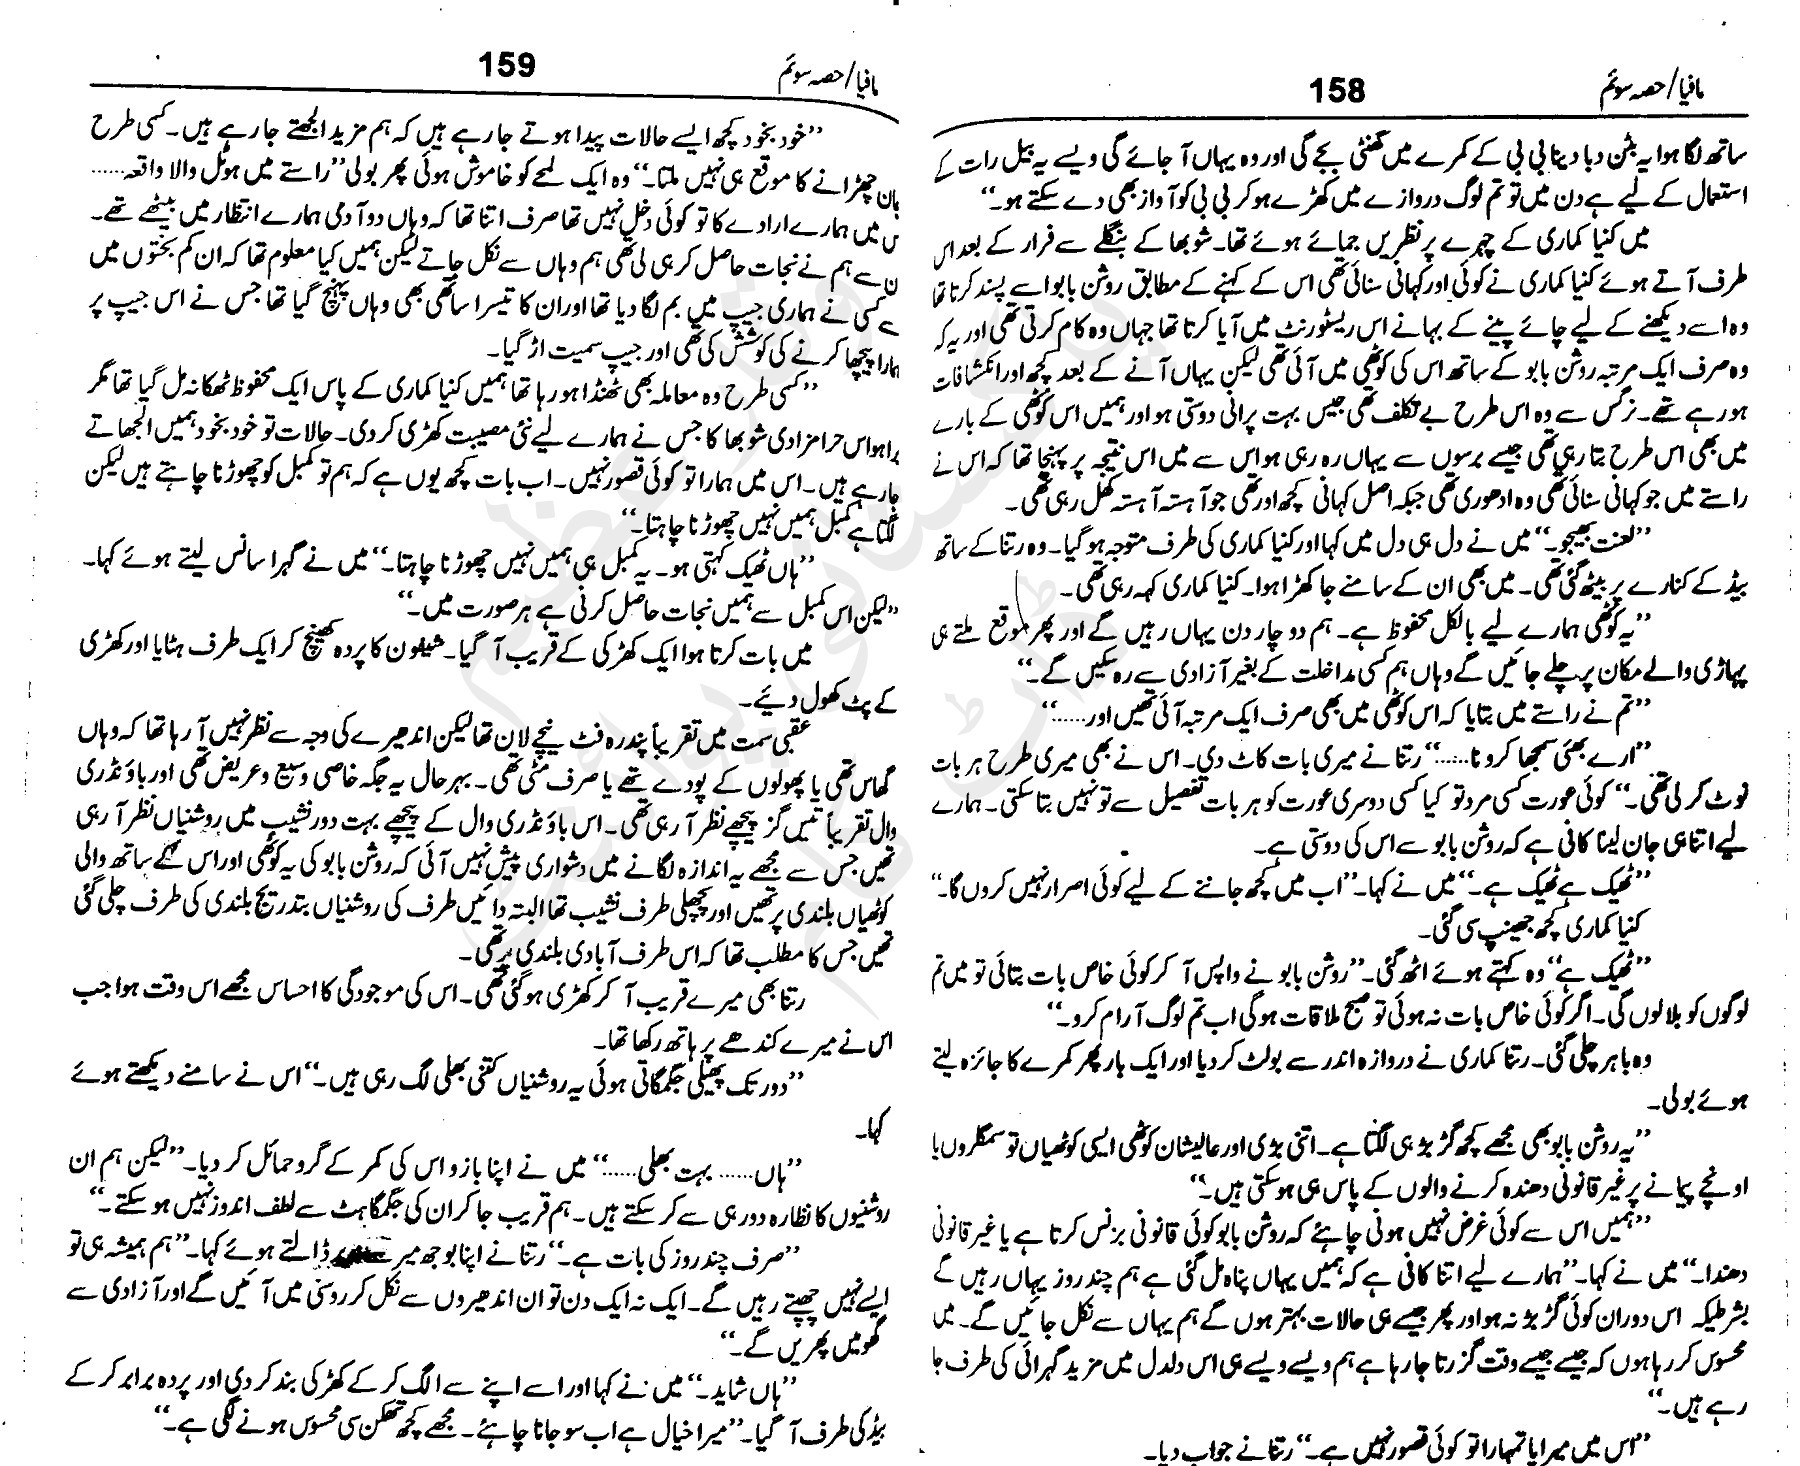 مافیا/حصہ سوئم 158
ساتھ لگا ہوا یہ بٹن دبا دینا بی بی کے کمرے میں گھنٹی بجے گی اور وہ یہاں آ جائے گی ویسے یہ بیل رات کے
استعمال کے لیے ہے دن میں تو تم لوگ دروازے میں کھڑے ہو کر بی بی کو آواز بھی دے سکتے ہو۔“
میں کنیا کماری کے چہرے پر نظریں جمائے ہوئے تھا۔ شوبھا کے بنگلے سے فرار کے بعد اس
طرف آتے ہوئے کنیا کماری نے کوئی اور کہانی سنائی تھی اس کے کہنے کے مطابق روشن بابو اسے پسند کرتا تھا
وہ اسے دیکھنے کے لیے چائے پینے کے بہانے اس ریسٹورنٹ میں آیا کرتا تھا جہاں وہ کام کرتی تھی اور یہ کہ
وہ صرف ایک مرتبہ روشن بابو کے ساتھ اس کی کوٹھی میں آئی تھی لیکن یہاں آنے کے بعد کچھ اور انکشافات
ہو رہے تھے۔ نرگس سے وہ اس طرح بے تکلف تھی جیس بہت پرانی دوستی ہو اور ہمیں اس کوٹھی کے بارے
میں بھی اس طرح بتا رہی تھی جیسے برسوں سے یہاں رہ رہی ہو اس سے میں اس نتیجہ پر پہنچا تھا کہ اس نے
راستے میں جو کہانی سنائی تھی وہ ادھوری تھی جبکہ اصل کہانی کچھ اور تھی جو آہستہ آہستہ کھل رہی تھی۔
”لعنت بھیجو۔“ میں نے دل ہی دل میں کہا اور کنیا کماری کی طرف متوجہ ہو گیا۔ وہ رتنا کے ساتھ
بیڈ کے کنارے پر بیٹھ گئی تھی۔ میں بھی ان کے سامنے جا کھڑا ہوا۔ کنیا کماری کہہ رہی تھی۔
”یہ کوٹھی ہمارے لیے بالکل محفوظ ہے۔ ہم دو چار دن یہاں رہیں گے اور پھر موقع ملتے ہی
پہاڑی والے مکان پر چلے جائیں گے وہاں ہم کسی مداخلت کے بغیر آزادی سے رہ سکیں گے۔“
”تم نے راستے میں بتایا کہ اس کوٹھی میں بھی صرف ایک مرتبہ آئی تھیں اور......“
”ارے بھئی سمجھا کرو نا......“ رتنا نے میری بات کاٹ دی۔ اس نے بھی میری طرح ہر بات
نوٹ کر لی تھی۔ ”کوئی عورت کسی مرد تو کیا کسی دوسری عورت کو ہر بات تفصیل سے تو نہیں بتا سکتی۔ ہمارے
لیے اتنا ہی جان لینا کافی ہے کہ روشن بابو سے اس کی دوستی ہے۔
”ٹھیک ہے ٹھیک ہے۔“ میں نے کہا۔ ”اب میں کچھ جاننے کے لیے کوئی اصرار نہیں کروں گا۔“
کنیا کماری کچھ جھینپ سی گئی۔
”ٹھیک ہے“ وہ کہتے ہوئے اٹھ گئی۔ ”روشن بابو نے واپس آ کر کوئی خاص بات بتائی تو میں تم
لوگوں کو بلا لوں گی۔ اگر کوئی خاص بات نہ ہوئی تو صبح ملاقات ہو گی اب تم لوگ آرام کرو۔“
وہ باہر چلی گئی۔ رتنا کماری نے دروازہ اندر سے بولٹ کر دیا اور ایک بار پھر کمرے کا جائزہ لیتے
ہوئے بولی۔
”یہ روشن بابو بھی مجھے کچھ گڑ بڑ ہی لگتا ہے۔ اتنی بڑی اور عالیشان کوٹھی ایسی کوٹھیاں تو سمگلروں یا
اونچے پیمانے پر غیر قانونی دھندہ کرنے والوں کے پاس ہی ہو سکتی ہیں۔“
”ہمیں اس سے کوئی غرض نہیں ہونی چاہئے کہ روشن بابو کوئی قانونی بزنس کرتا ہے یا غیر قانونی
دھندا۔“ میں نے کہا۔ ”ہمارے لیے اتنا کافی ہے کہ ہمیں یہاں پناہ مل گئی ہے ہم چند روز یہاں رہیں گے
بشرطیکہ اس دوران کوئی گڑ بڑ نہ ہو اور پھر جیسے ہی حالات بہتر ہوں گے ہم یہاں سے نکل جائیں گے۔ میں
محسوس کر رہا ہوں کہ جیسے جیسے وقت گزرتا جا رہا ہے ہم ویسے ویسے ہی اس دلدل میں مزید گہرائی کی طرف جا
رہے ہیں۔“
”اس میں میرا یا تمہارا تو کوئی قصور نہیں ہے۔“ رتنا نے جواب دیا۔
مافیا/حصہ سوئم 159
”خود بخود کچھ ایسے حالات پیدا ہوتے جا رہے ہیں کہ ہم مزید الجھتے جا رہے ہیں۔ کسی طرح
چھڑانے کا موقع ہی نہیں ملتا۔“ وہ ایک لمحے کو خاموش ہوئی پھر بولی ”راستے میں ہوٹل والا واقعہ......
میں ہمارے ارادے کا تو کوئی دخل نہیں تھا صرف اتنا تھا کہ وہاں دو آدمی ہمارے انتظار میں بیٹھے تھے۔
سے ہم نے نجات حاصل کر ہی لی تھی ہم وہاں سے نکل جاتے لیکن ہمیں کیا معلوم تھا کہ ان کم بختوں میں
سے کسی نے ہماری جیپ میں بم لگا دیا تھا اور ان کا تیسرا ساتھی بھی وہاں پہنچ گیا تھا جس نے اس جیپ پر
ہمارا پیچھا کرنے کی کوشش کی تھی اور جیپ سمیت اڑ گیا۔
”کسی طرح وہ معاملہ بھی ٹھنڈا ہو رہا تھا ہمیں کنیا کماری کے پاس ایک محفوظ ٹھکانہ مل گیا تھا مگر
برا ہو اس حرامزادی شوبھا کا جس نے ہمارے لیے نئی مصیبت کھڑی کر دی۔ حالات تو خود بخود ہمیں الجھاتے
جا رہے ہیں۔ اس میں ہمارا تو کوئی قصور نہیں۔ اب بات کچھ یوں ہے کہ ہم تو کمبل کو چھوڑنا چاہتے ہیں لیکن
لگتا ہے کمبل ہمیں نہیں چھوڑنا چاہتا۔“
”ہاں ٹھیک کہتی ہو۔ یہ کمبل ہی ہمیں نہیں چھوڑنا چاہتا۔“ میں نے گہرا سانس لیتے ہوئے کہا۔
”لیکن اس کمبل سے ہمیں نجات حاصل کرنی ہے ہر صورت میں۔“
میں بات کرتا ہوا ایک کھڑکی کے قریب آ گیا۔ شیلون کا پردہ کھینچ کر ایک طرف ہٹایا اور کھڑکی
کے پٹ کھول دیئے۔
عقبی سمت میں تقریباً پندرہ فٹ نیچے لان تھا لیکن اندھیرے کی وجہ سے نظر نہیں آ رہا تھا کہ وہاں
گھاس تھی یا پھولوں کے پودے تھے یا صرف مٹی تھی۔ بہر حال یہ جگہ خاصی وسیع و عریض تھی اور باؤنڈری
وال تقریباً تیس گز پیچھے نظر آ رہی تھی۔ اس باؤنڈری وال کے پیچھے بہت دور نشیب میں روشنیاں نظر آ رہی
تھیں جس سے مجھے یہ اندازہ لگانے میں دشواری پیش نہیں آئی کہ روشن بابو کی یہ کوٹھی اور اس کے ساتھ والی
کوٹھیاں بلندی پر تھیں اور پچھلی طرف نشیب تھا البتہ دائیں طرف کی روشنیاں بتدریج بلندی کی طرف چلی گئی
تھیں جس کا مطلب تھا کہ اس طرف آبادی بلندی پر تھی۔
رتنا بھی میرے قریب آ کر کھڑی ہو گئی تھی۔ اس کی موجودگی کا احساس مجھے اس وقت ہوا جب
اس نے میرے کندھے پر ہاتھ رکھا تھا۔
”دور تک پھیلی جگمگاتی ہوئی یہ روشنیاں کتنی بھلی لگ رہی ہیں۔“ اس نے سامنے دیکھتے ہوئے
کہا۔
”ہاں...... بہت بھلی......“ میں نے اپنا بازو اس کی کمر کے گرد حمائل کر دیا۔ ”لیکن ہم ان
روشنیوں کا نظارہ دور ہی سے کر سکتے ہیں۔ ہم قریب جا کر ان کی جگمگاہٹ سے لطف اندوز نہیں ہو سکتے۔“
”صرف چند روز کی بات ہے۔“ رتنا نے اپنا بوجھ میرے پر ڈالتے ہوئے کہا۔ ”ہم ہمیشہ ہی تو
ایسے نہیں چھپتے رہیں گے۔ ایک نہ ایک دن تو ان اندھیروں سے نکل کر روشنی میں آئیں گے اور آزادی سے
گھومیں پھریں گے۔“
”ہاں شاید۔“ میں نے کہا اور اسے اپنے سے الگ کر کے کھڑکی بند کر دی اور پردہ برابر کر کے
بیڈ کی طرف آ گیا۔ ”میرا خیال ہے اب سو جانا چاہئے۔ مجھے کچھ تھکن سی محسوس ہونے لگی ہے۔“